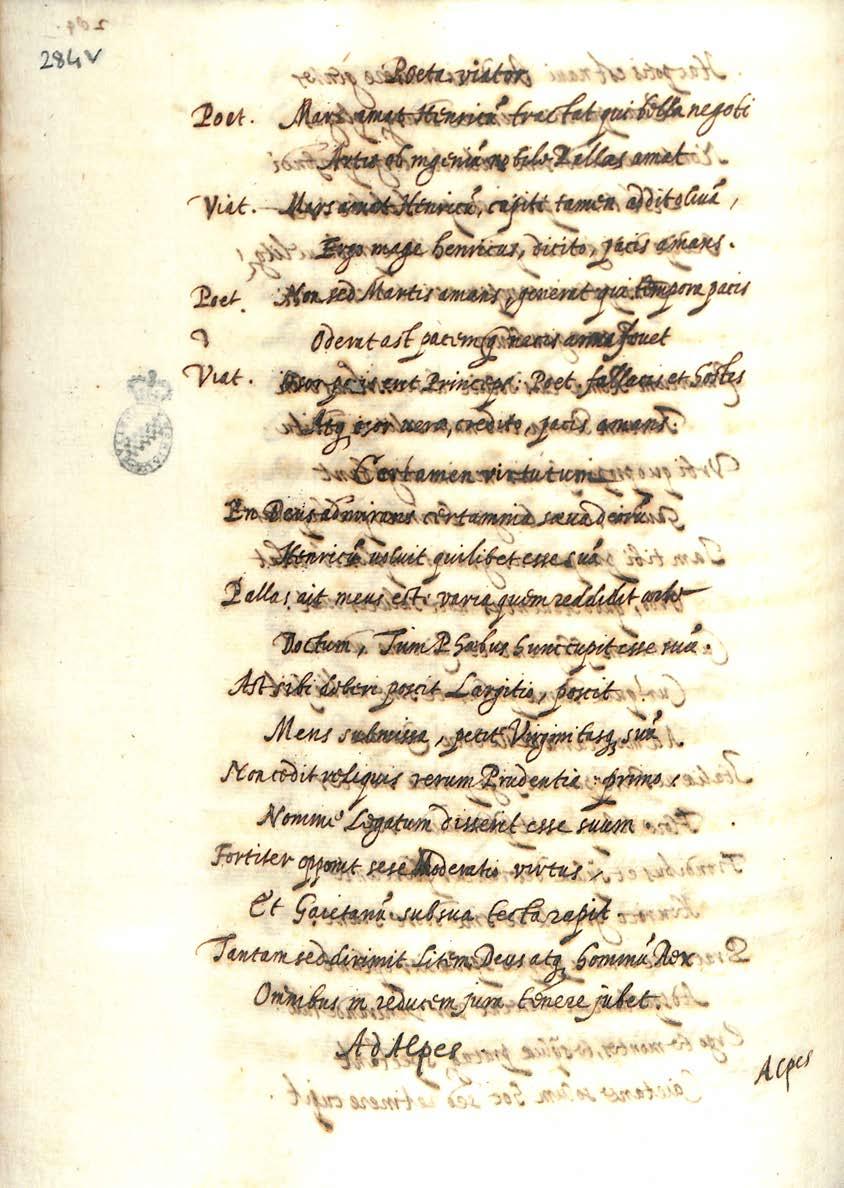 284v
Poeta. viator
Poet. Mars amat Henricū tractat qui bella negoti
Artis ob ingeniū nobile Pallas amat
Viat. Mars amat Henricū, capiti tamen addit olivā,
Ergo mage henricus, dicito, pacis amans.
Poet. Non sed Martis amans, generat qui tempora pacis
Oderat ast pacem q arma fouet
Viat. Osor pacis erit Princeps. Poet. fallacis et hostis
Atq osor veræ, credito, pacis amans.
Certamen virtutum
En Deus admirans certamina sæua deorū
Henricū voluit quilibet esse suū
Pallas ait meus est: varia quem reddidit arte
Doctum, Tum Phœbus hunc cupit esse suū.
Ast sibi deberi poscit Largitio, poscit
Mens submissa, petit Virginitasq suū
Non cedit reliquis rerum Prudentia primo:
Nomine Legatum disseret esse suum
Fortiter opponit sese Moderatio virtus,
Et Gaietanū sub sua tecta rapit.
Tantam sed dirimit litem Deus atq hominū Rex
Omnibus in reducem jura tenere jubet.
Ad Alpes
Alpes